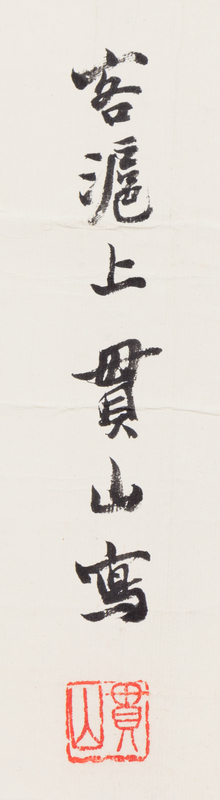 客滬上貫山寫
貫山